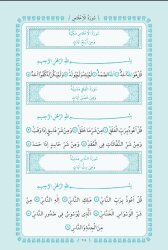 سُورَةُ الْإِخْلَاصِ
سُورَةُ الْإِخْلَاصِ مَكِّيَّةٌ
بِسْمِ اللَّهِ الرَّحْمَٰنِ الرَّحِيمِ
قُلْ هُوَ اللَّهُ أَحَدٌ اللَّهُ الصَّمَدُ لَمْ يَلِدْ وَلَمْ يُولَدْ وَلَمْ يَكُنْ لَهُ كُفُوًا أَحَدٌ
سُورَةُ الْفَلَقِ مَكِّيَّةٌ
بِسْمِ اللَّهِ الرَّحْمَٰنِ الرَّحِيمِ
قُلْ أَعُوذُ بِرَبِّ الْفَلَقِ مِنْ شَرِّ مَا خَلَقَ وَمِنْ شَرِّ غَاسِقٍ إِذَا وَقَبَ
وَمِنْ شَرِّ النَّفَّاثَاتِ فِي الْعُقَدِ وَمِنْ شَرِّ حَاسِدٍ إِذَا حَسَدَ
سُورَةُ النَّاسِ مَكِّيَّةٌ
بِسْمِ اللَّهِ الرَّحْمَٰنِ الرَّحِيمِ
قُلْ أَعُوذُ بِرَبِّ النَّاسِ مَلِكِ النَّاسِ إِلَٰهِ النَّاسِ مِنْ
شَرِّ الْوَسْوَاسِ الْخَنَّاسِ الَّذِي يُوَسْوِسُ فِي صُدُورِ النَّاسِ
مِنَ الْجِنَّةِ وَالنَّاسِ